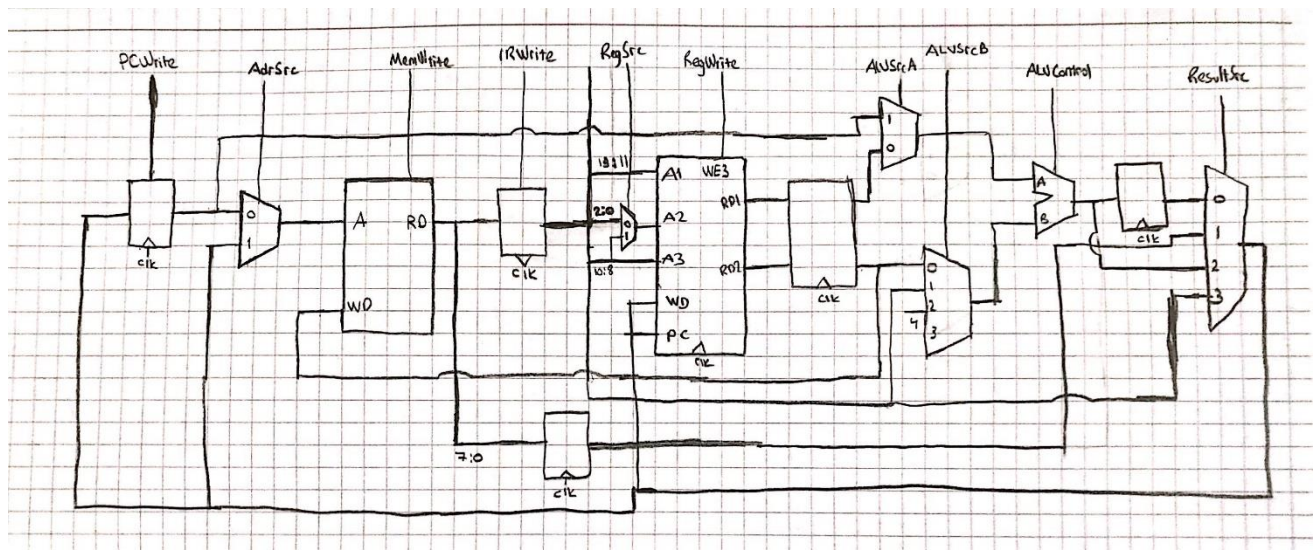 PCWrite
AdrSrc
MemWrite
IRWrite
RegSrc
RegWrite
ALUSrcA
ALUSrcB
ALUControl
ResultSrc
clk
0
1
A
RD
WD
clk
2:0
10:8
0
1
A1
WE3
A2
RD1
A3
RD2
WD
PC
clk
clk
1
0
0
1
2
4
3
A
B
clk
0
1
2
3
7:0
clk